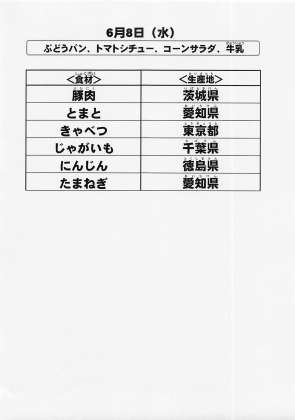 6月8日（水）
ぶどうパン、トマトシチュー、コーンサラダ、牛乳
＜食材＞ ＜生産地＞
豚肉 茨城県
とまと 愛知県
きゃべつ 東京都
じゃがいも 千葉県
にんじん 徳島県
たまねぎ 愛知県